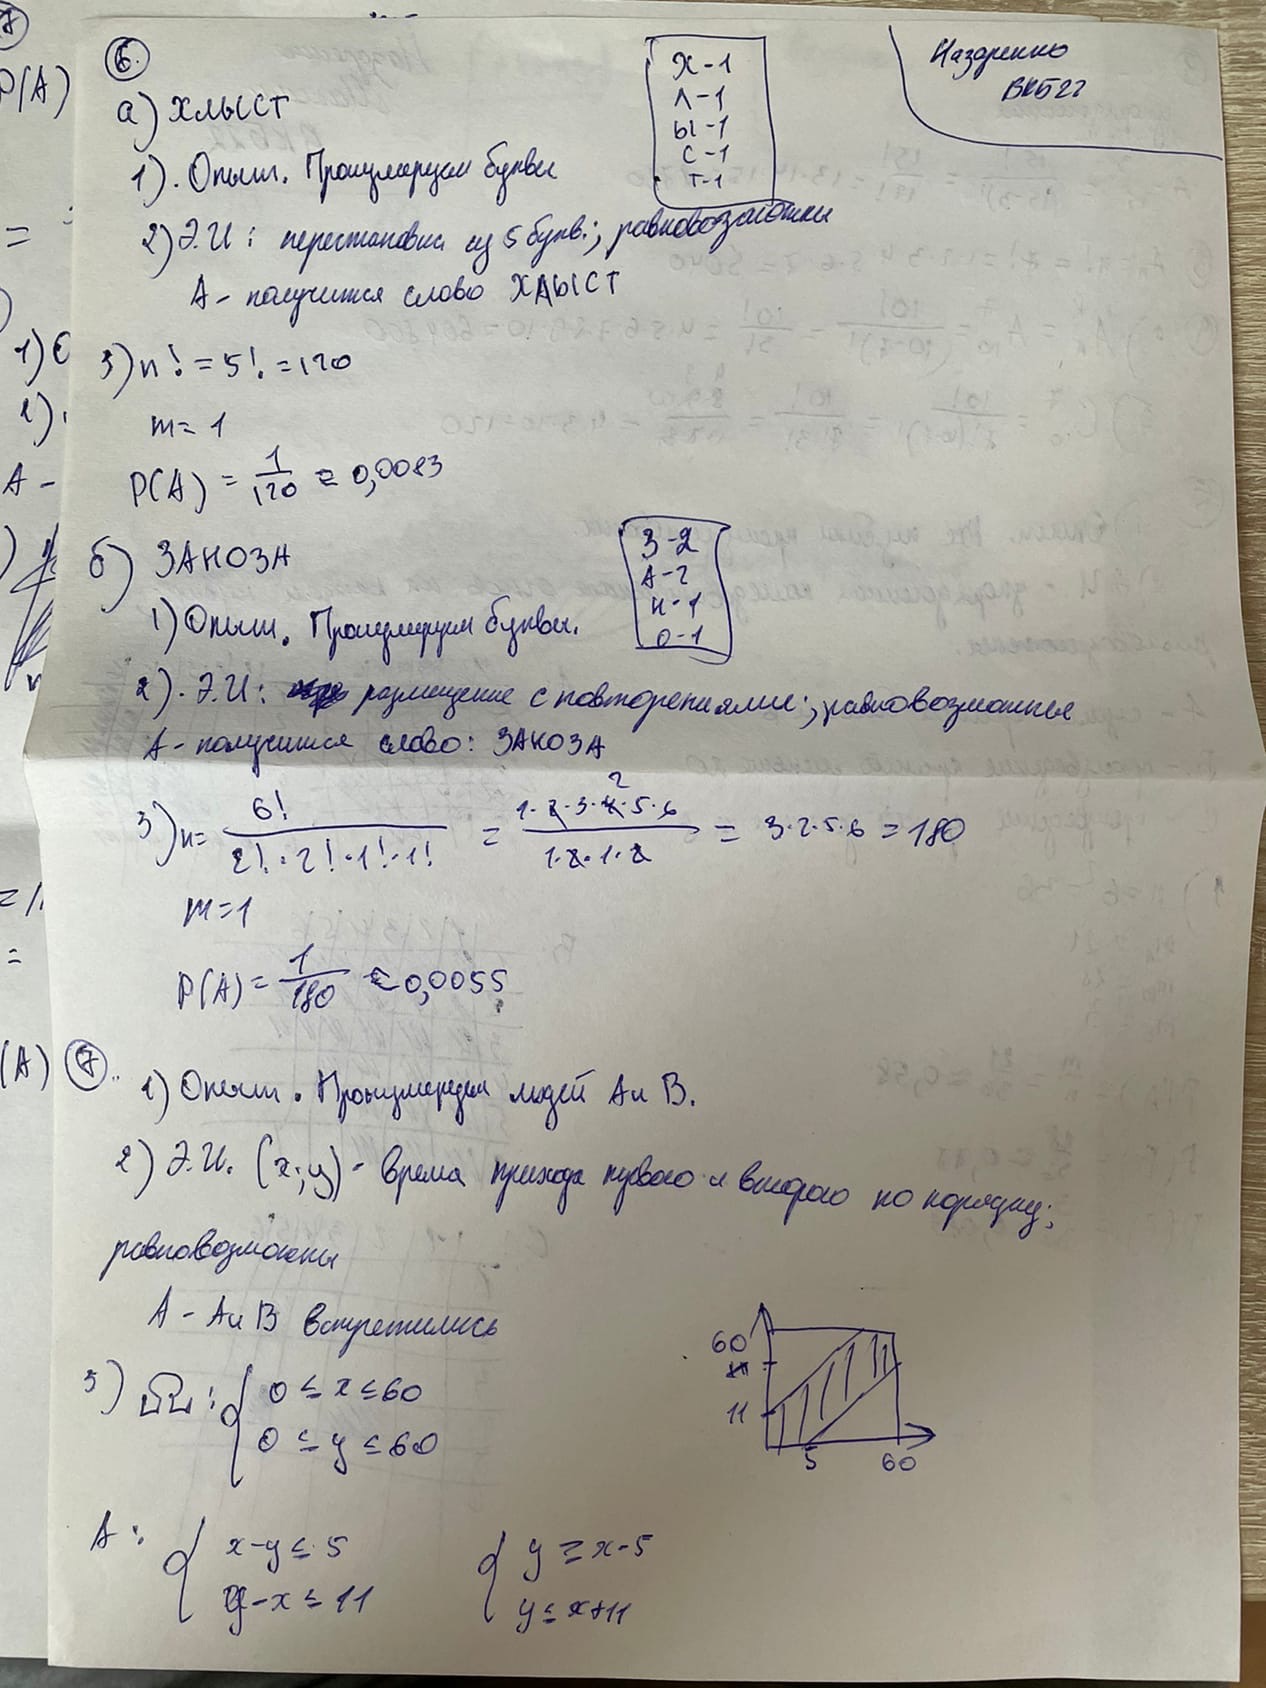 Назаренко
ВКБ22
6.
а) ХЛЫСТ
Х-1
Л-1
Ы-1
С-1
Т-1
1). Опыт. Пронумеруем буквы
2) Э.И: перестановки из 5 букв.; равновозможны
А - получится слово ХЛЫСТ
3) n! = 5! = 120
m = 1
P(A) = 1/120 ≈ 0,0083
б) ЗАНОЗА
З-2
А-2
Н-1
О-1
1) Опыт. Пронумеруем буквы.
2). Э.И: размещение с повторениями; равновозможные
А - получится слово: ЗАНОЗА
3) n = 6!/(2!·2!·1!·1!) = (1·2·3·4·5·6)/(1·2·1·2) = 3·2·5·6 = 180
m = 1
P(A) = 1/180 ≈ 0,0055
7.
1) Опыт. Пронумеруем людей А и В.
2) Э.И. (x;y) - время прихода первого и второго по порядку;
равновозможны
А - А и В встретились
3) Ω: { 0 ≤ x ≤ 60
0 ≤ y ≤ 60
60
11
5 60
А: { x-y ≤ 5 { y ≥ x-5
y-x ≤ 11 y ≤ x+11
P(A)
=
1)
2)
А -
=
(A)